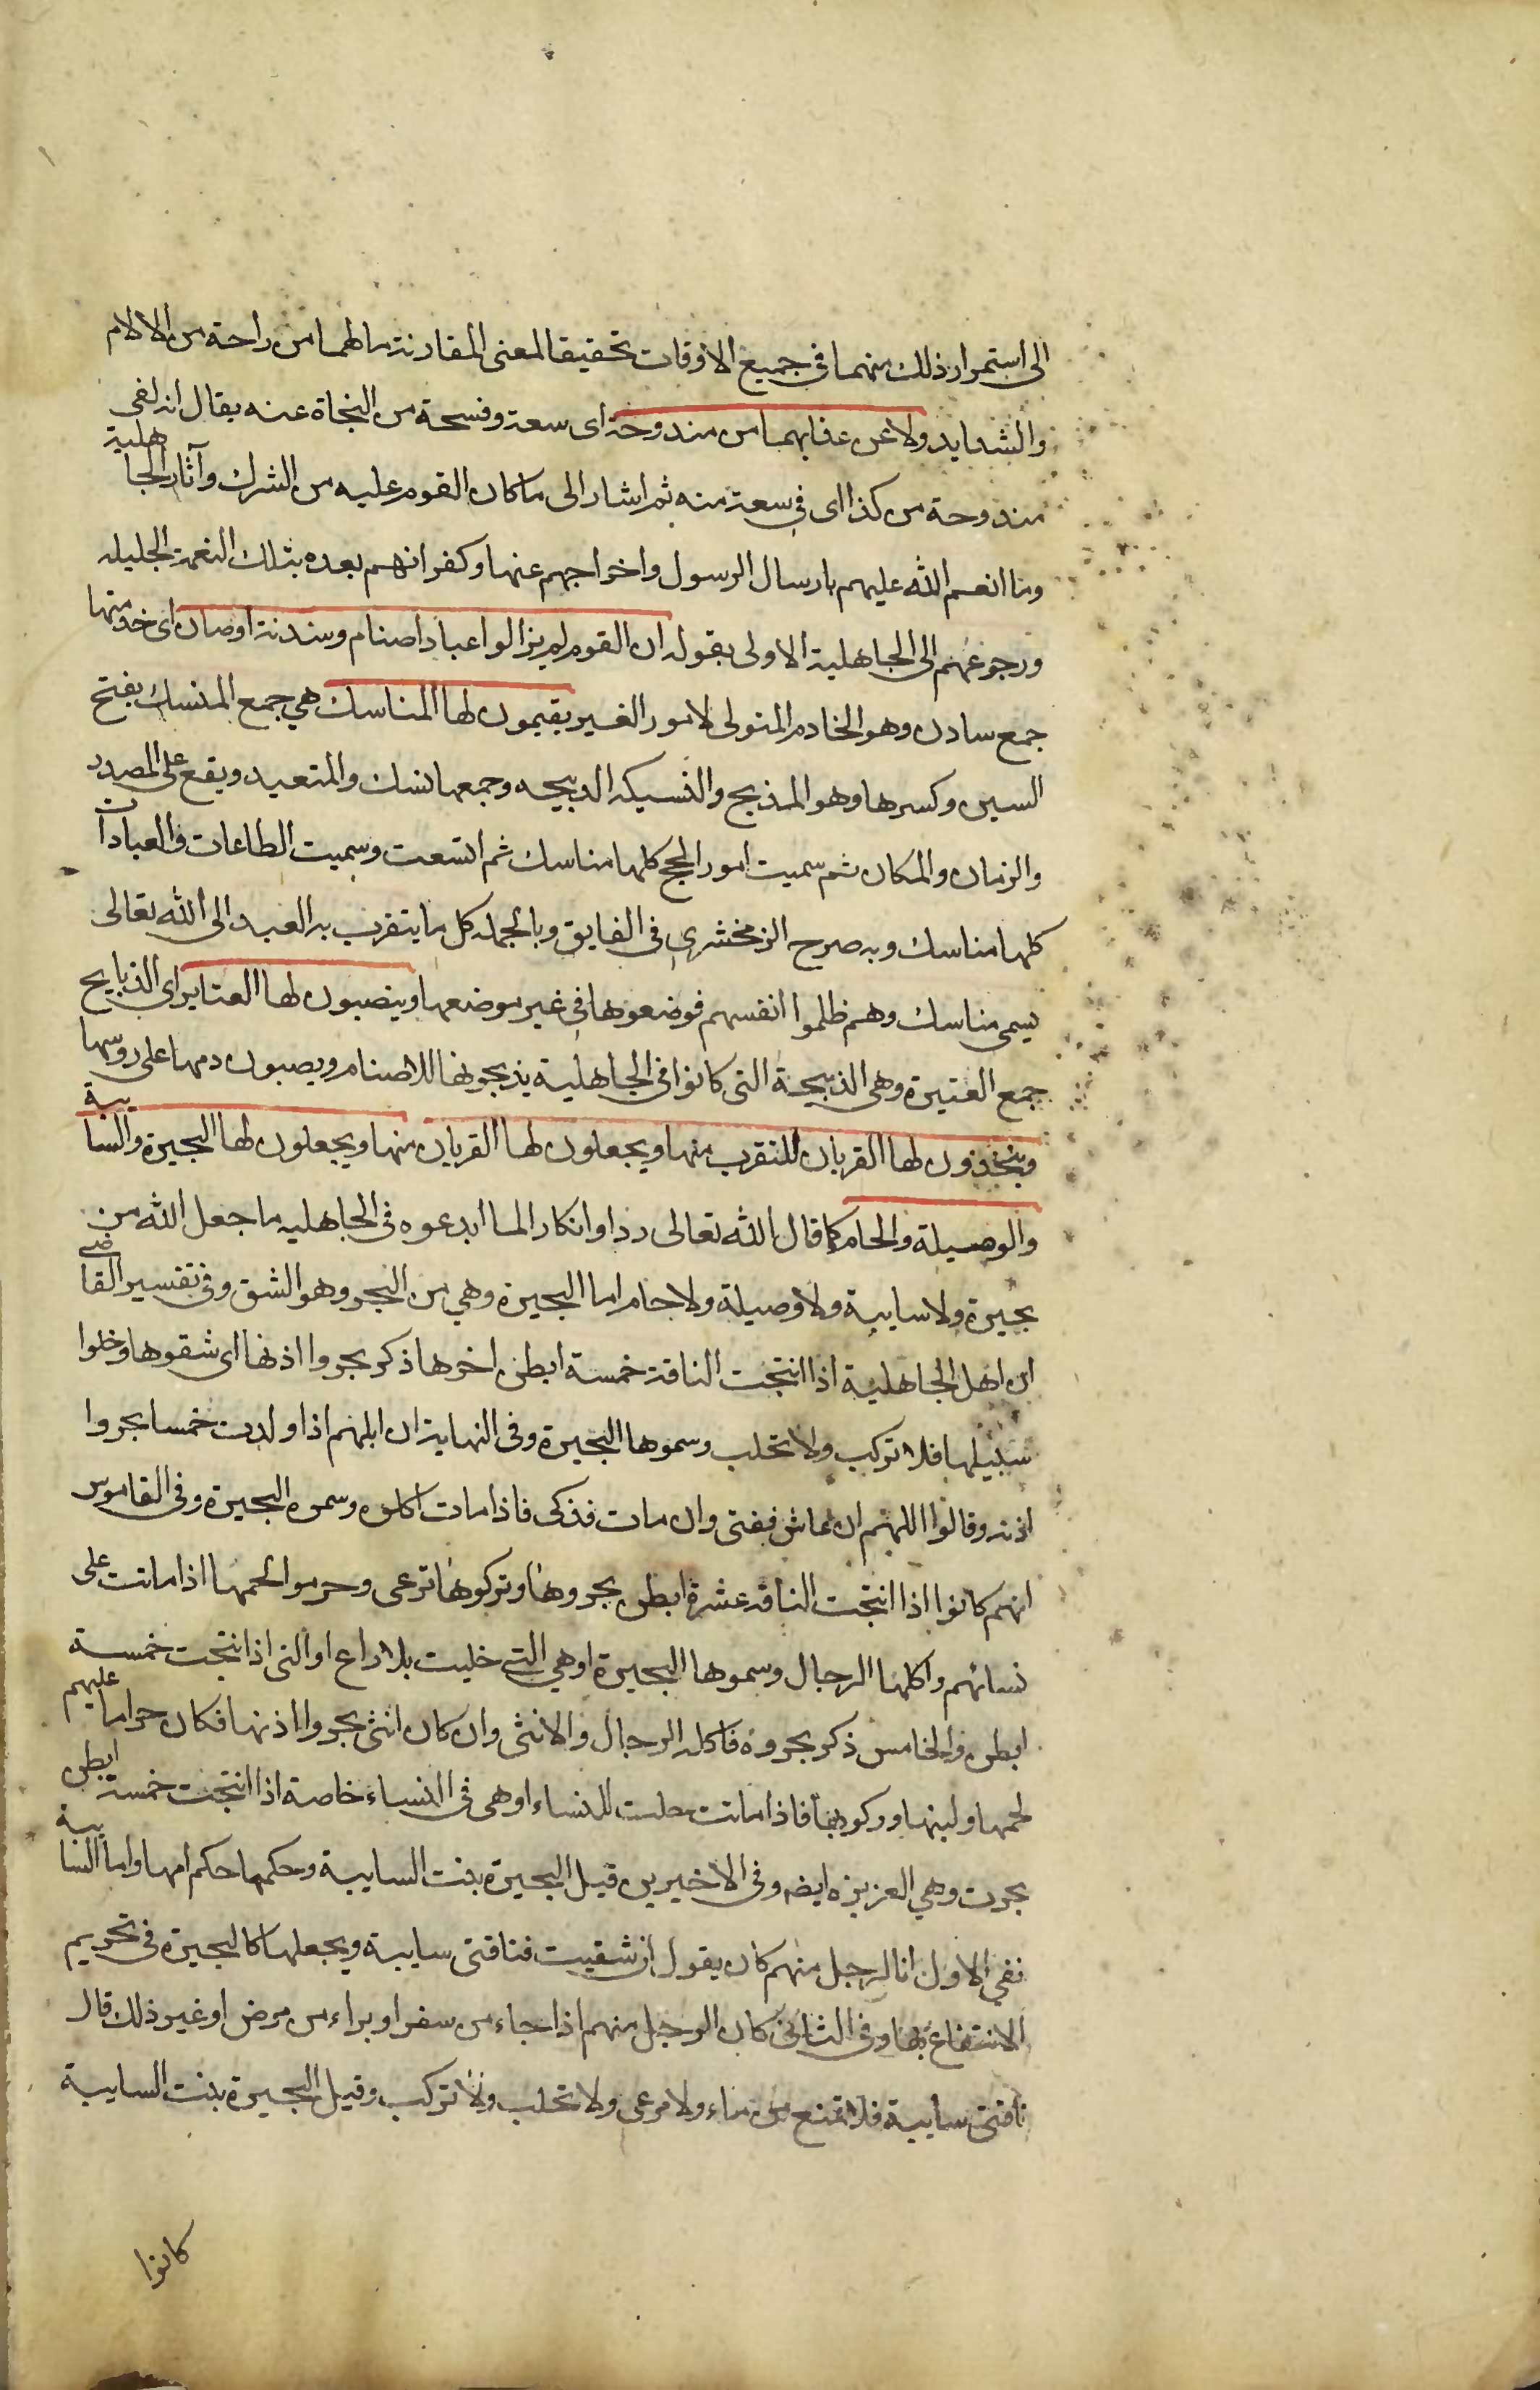 الى استمرار ذلك منهما فى جميع الاوقات تحقيقا لمعنى المقارنة ما لهما من راحة من الالام
والشدايد ولا عن عذابهما من مندوحة اى سعة وفسحة من النجاة عنه يقال انه لفى
مندوحة من كذا اى فى سعة منه ثم اشار الى ما كان القوم عليه من الشرك وآثار الجاهلية
وما انعم الله عليهم بارسال الرسول واخراجهم عنها وكفرانهم بعده بتلك النعمة الجليله
ورجوعهم الى الجاهلية الاولى بقوله ان القوم لم يزالوا عباد اصنام وسدنة اوثان اى خدمتها
جمع سادن وهو الخادم المتولى لامور الغير يقيمون لها المناسك هي جمع المنسك بفتح
السين وكسرها وهو المذبح والنسيكه الذبيحه وجمعها نسك والمتعبد ويقع على المصدر
والزمان والمكان ثم سميت امور الحج كلها مناسك ثم اتسعت وسميت الطاعات والعبادات
كلها مناسك وبه صرح الزمخشرى فى الفايق وبالجمله كل ما يتقرب به العبد الى الله تعالى
يسمى مناسك وهم ظلموا انفسهم فوضعوها فى غير موضعها وينصبون لها العتاير اى الذبايح
جمع العتيرة وهى الذبيحة التى كانوا فى الجاهلية يذبحونها للاصنام ويصبون دمها على روسها
ويتخذون لها القربان للتقرب منها ويجعلون لها القربان منها ويجعلون لها البحيرة والسايبة
والوصيلة والحام كما قال الله تعالى ردا وانكارا لما ابدعوه فى الجاهليه ما جعل الله من
بحيرة ولا سايبة ولا وصيلة ولا حام اما البحيرة وهي من البحر وهو الشق وفى تفسير القاضى
ان اهل الجاهلية اذا انتجت الناقة خمسة ابطن اخرها ذكر بحروا اذنها اى شقوها وخلوا
سبيلها فلا تركب ولا تحلب وسموها البحيرة وفى النهاية ان ابلهم اذا ولدت خمسا بحروا
اذنه وقالوا اللهم ان عاش ففتى وان مات فذكى فاذا مات اكلوه وسموه البحيرة وفى القاموس
انهم كانوا اذا انتجت الناقه عشرة ابطن بحروها وتركوها ترعى وحرموا لحمها اذا ماتت على
نسائهم واكلها الرجال وسموها البحيرة او هي التي خليت بلا راع او التى اذا نتجت خمسة
ابطن والخامس ذكر بحروه فاكله الرجال والانثى وان كان انثى بحروا اذنها فكان حراما عليهم
لحمها ولبنها وركوبها فاذا ماتت حلت للنساء او هى فى النساء خاصة اذا انتجت خمسة ابطن
بحرت وهي العزيزه ايضه وفى الاخيرين قيل البحيرة بنت السايبة وحكمها حكم امها واما السايبة
نفي الاول ان الرجل منهم كان يقول ان شفيت فناقتى سايبة ويجعلها كالبحيرة فى تحريم
الانتفاع بها وفى الثانى كان الرجل منهم اذا جاء من سفر او براء من مرض او غير ذلك قال
ناقتى سايبة فلا تمنع من ماء ولا مرعى ولا تحلب ولا تركب وقيل البحيرة بنت السايبة
كانوا